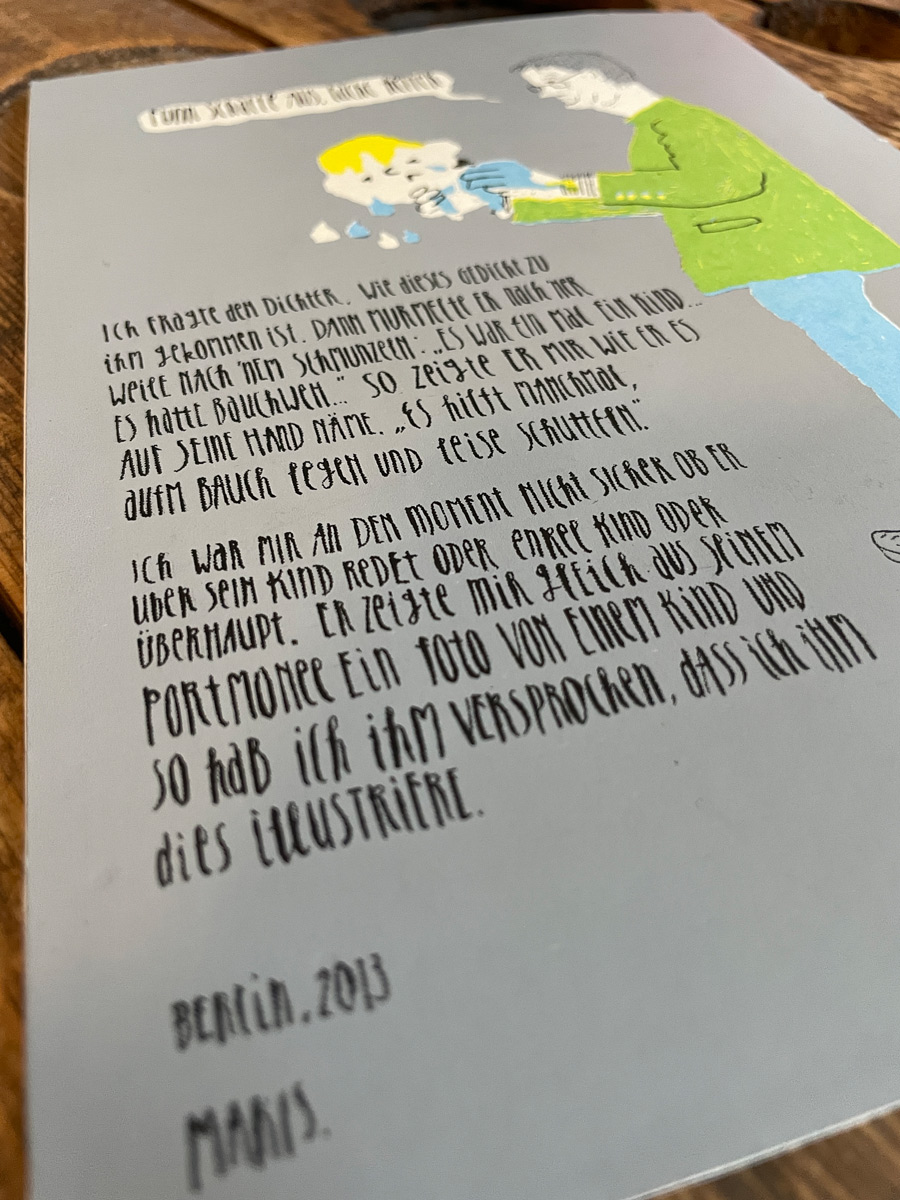 Ich fragte den Dichter, wie dieses Gedicht zu
ihm gekommen ist. Dann murmelte er nach 'ner
Weile nach 'nem Schmunzeln: „Es war ein mal ein Kind...
es hatte Bauchweh..." So zeigte er mir wie er es
auf seine Hand näme. „Es hilft manchmal,
aufm Bauch legen und leise schütteln".
Ich war mir an den Moment nicht sicher ob er
über sein Kind redet oder enkel Kind oder
überhaupt. Er zeigte mir gleich aus seinem
Portmonee ein Foto von einem Kind und
so hab ich ihm versprochen, dass ich ihm
dies illustriere.
Berlin, 2013
Maris.